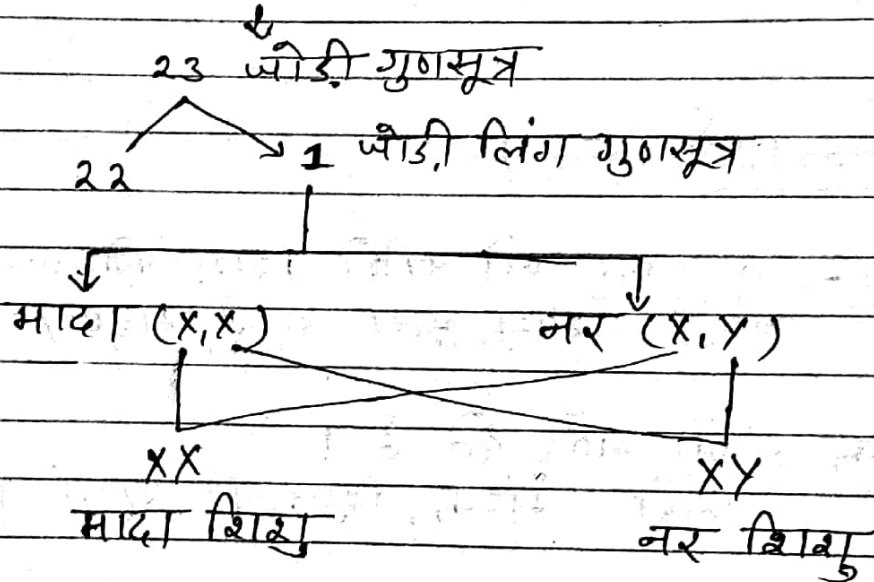 23 जोड़ी गुणसूत्र
22 1 जोड़ी लिंग गुणसूत्र
मादा (X,X) नर (X,Y)
XX XY
मादा शिशु नर शिशु